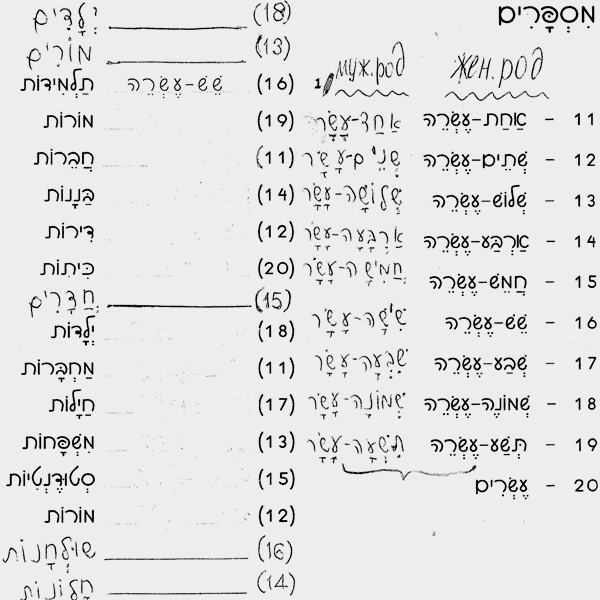 מִסְפָּרִים
муж.род жен.род
11 - אַחַת-עֶשְׂרֵה אַחַד-עָשָׂר
12 - שְׁתֵּים-עֶשְׂרֵה שְׁנֵים-עָשָׂר
13 - שְׁלוֹשׁ-עֶשְׂרֵה שְׁלוֹשָׁה-עָשָׂר
14 - אַרְבַּע-עֶשְׂרֵה אַרְבָּעָה-עָשָׂר
15 - חֲמֵשׁ-עֶשְׂרֵה חֲמִישָׁה-עָשָׂר
16 - שֵׁשׁ-עֶשְׂרֵה שִׁישָׁה-עָשָׂר
17 - שְׁבַע-עֶשְׂרֵה שִׁבְעָה-עָשָׂר
18 - שְׁמוֹנֶה-עֶשְׂרֵה שְׁמוֹנָה-עָשָׂר
19 - תְּשַׁע-עֶשְׂרֵה תִּשְׁעָה-עָשָׂר
20 - עֶשְׂרִים
(18) יְלָדִים
(13) מוֹרִים
1 (16) שֵׁשׁ-עֶשְׂרֵה תַּלְמִידוֹת
(19) מוֹרוֹת
(11) חֲבֵרוֹת
(14) בַּנָנוֹת
(12) דִירוֹת
(20) כִּיתוֹת
(15) חֲדָרִים
(18) יְלָדוֹת
(11) מַחְבָּרוֹת
(17) חַיָלוֹת
(13) מִשְׁפָּחוֹת
(15) סְטוּדֶנְטִיוֹת
(12) מוֹרוֹת
(16) שׁוּלְחָנוֹת
(14) חַלוֹנוֹת